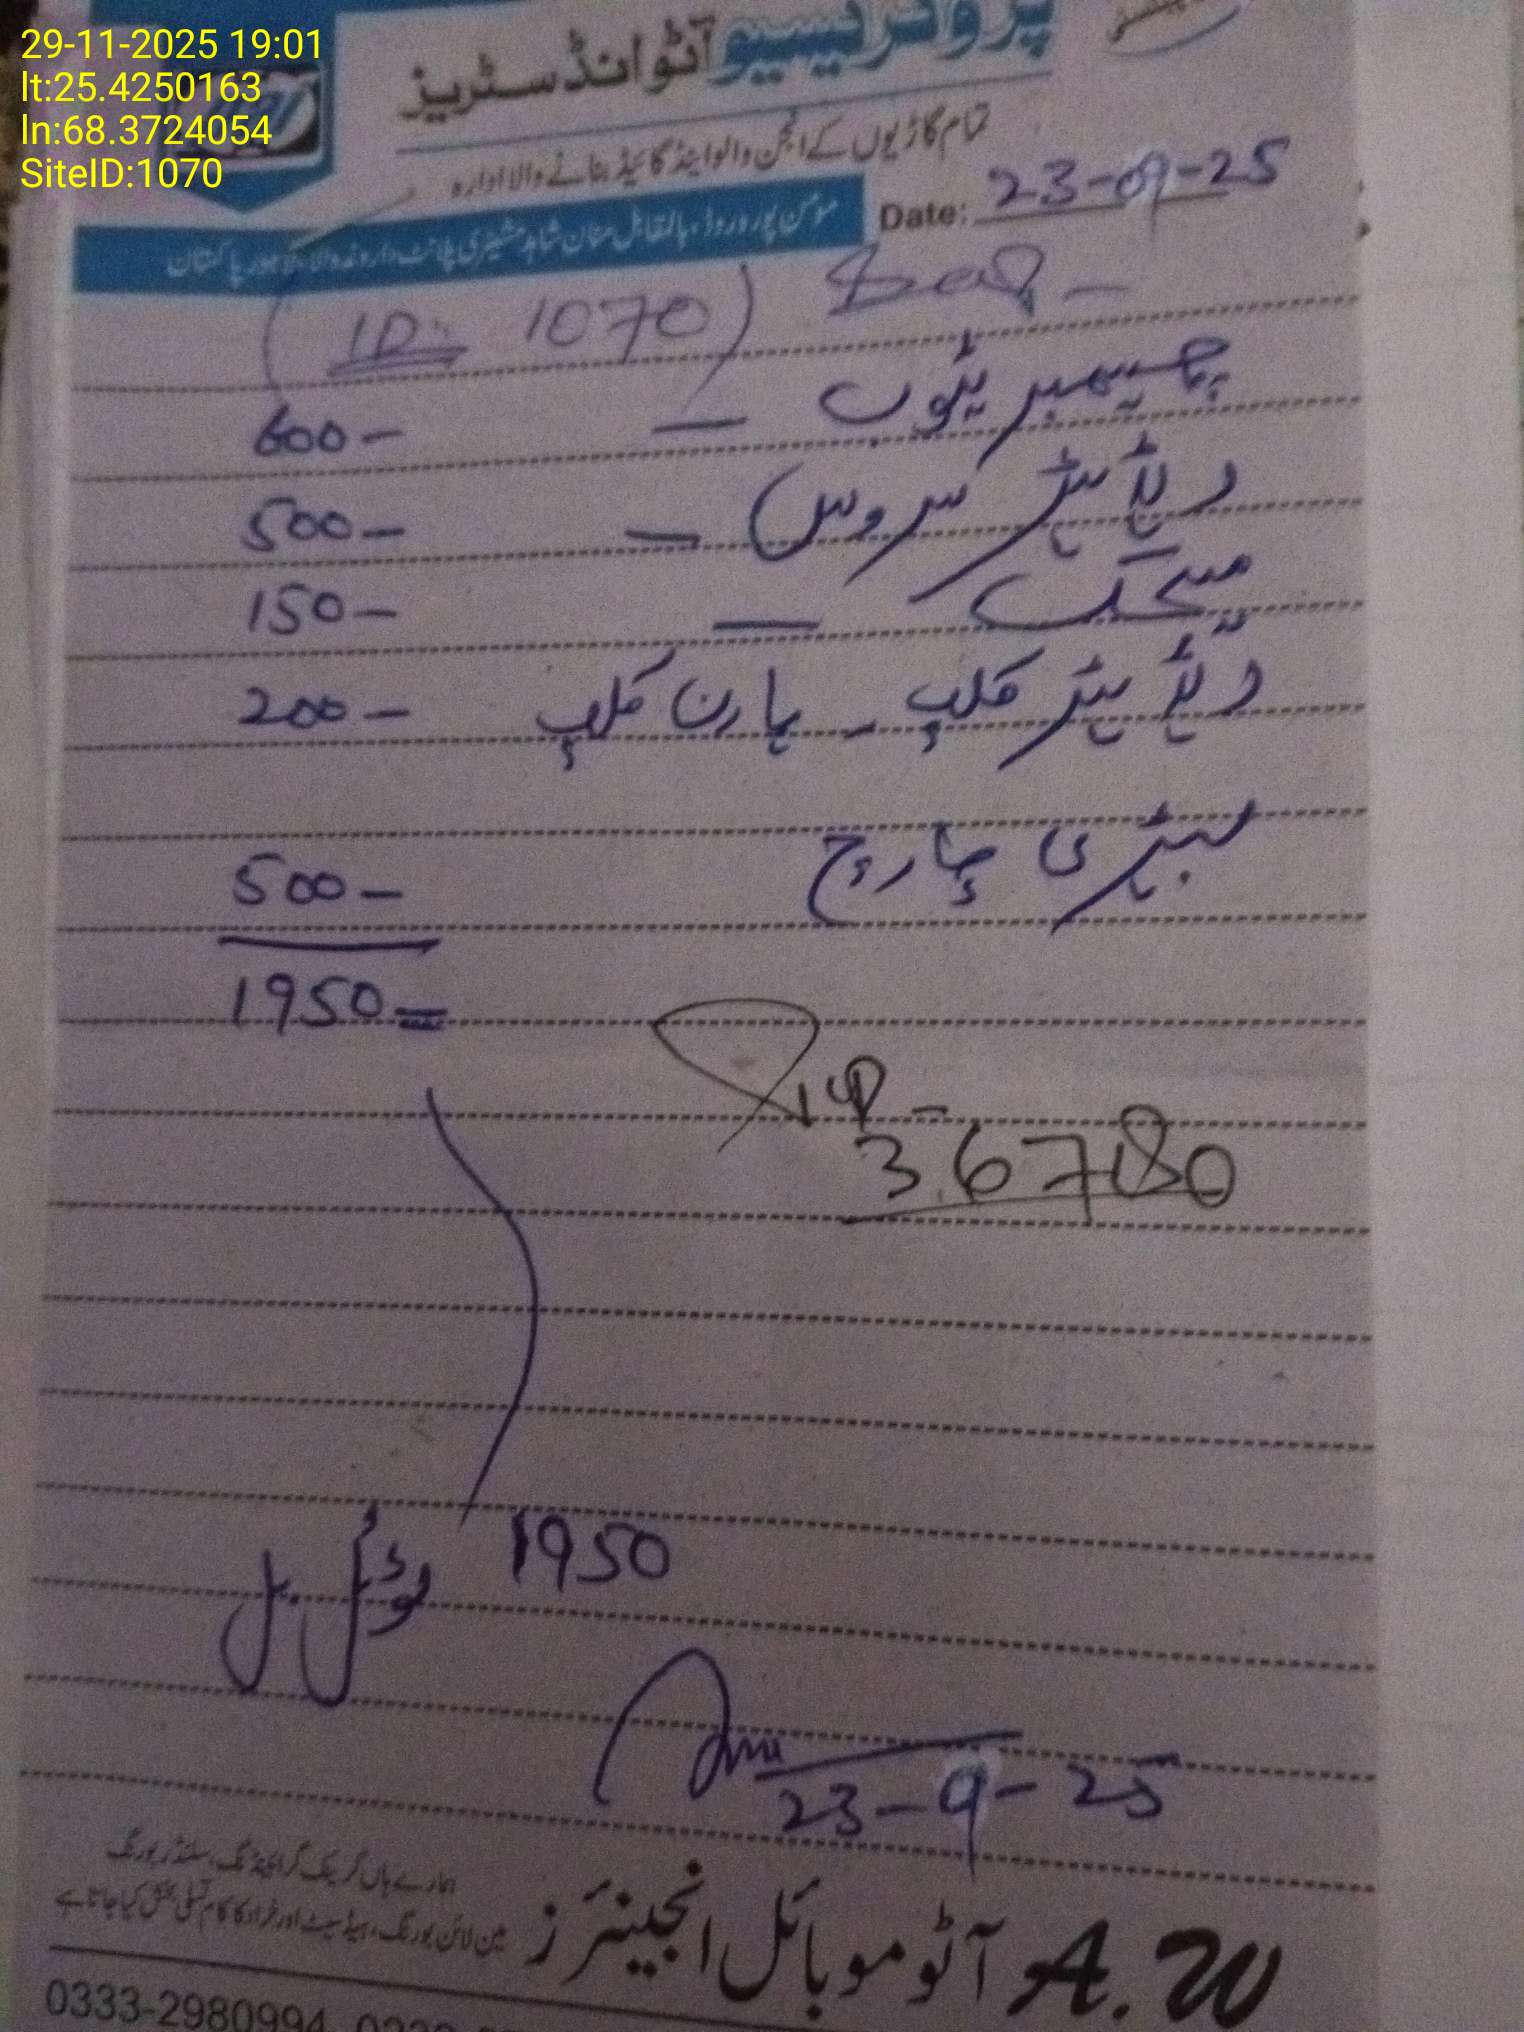 29-11-2025 19:01
lt:25.4250163
ln:68.3724054
SiteID:1070
پروگریسیو آٹو انڈسٹریز
تمام گاڑیوں کے انجن والو اینڈ گائیڈ بنانے والا ادارہ
مومن پورہ روڈ، بالمقابل منان شاہد مشینری پلانٹ داروغہ والا لاہور پاکستان
Date: 23-09-25
(ID: 1070)
چیمبر ٹیوب — 600-
ریڈیٹر سروس — 500-
150-
ریڈیٹر کلپ - ہارن کلپ 200-
بیٹری چارج 500-
1950=
36780
1950
ٹوٹل بل
23-9-25
ہمارے ہاں کرینک گرائینڈنگ، سلنڈر بورنگ
مین لائن بورنگ، ہیڈ سیٹ اور خراد کا کام تسلی بخش کیا جاتا ہے
A.W آٹو موبائل انجینئرز
0333-2980994